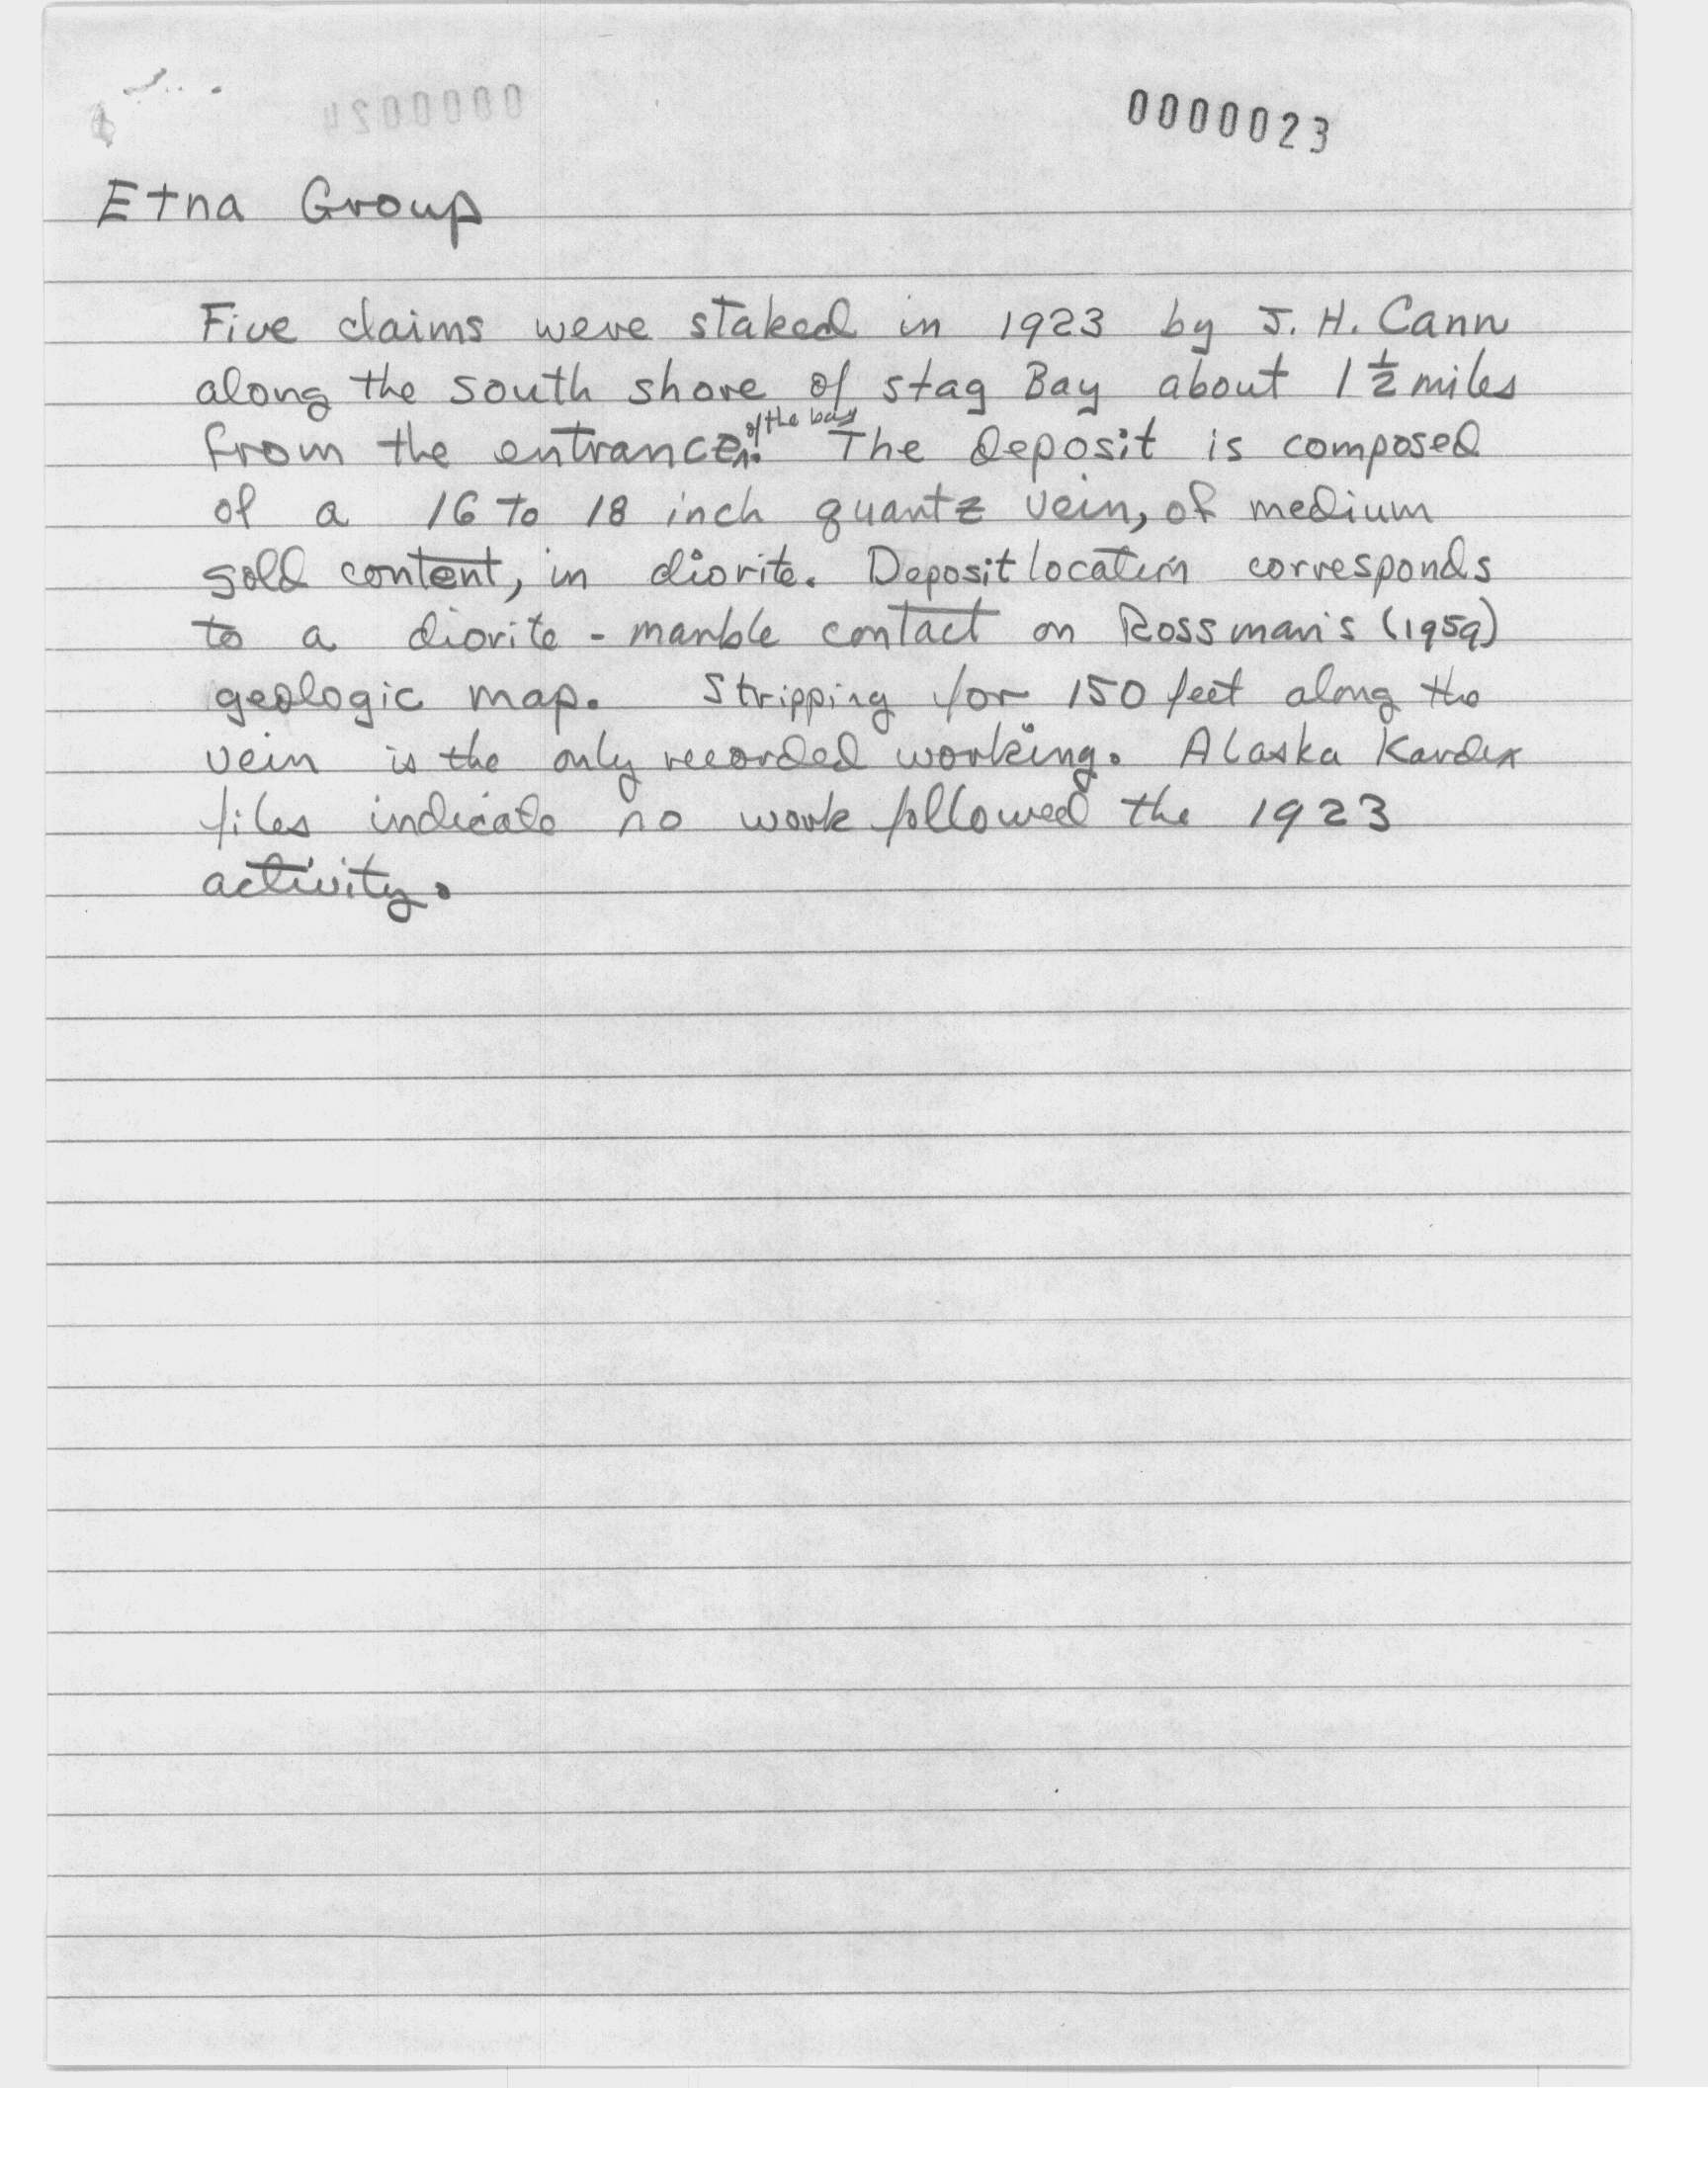 0000023
Etna Group
Five claims were staked in 1923 by J. H. Cann
along the south shore of Stag Bay about 1 1/2 miles
from the entrance of the bay. The deposit is composed
of a 16 to 18 inch quartz vein, of medium
gold content, in diorite. Deposit location corresponds
to a diorite - marble contact on Rossman's (1959)
geologic map. Stripping for 150 feet along the
vein is the only recorded working. Alaska Kardex
files indicate no work followed the 1923
activity.